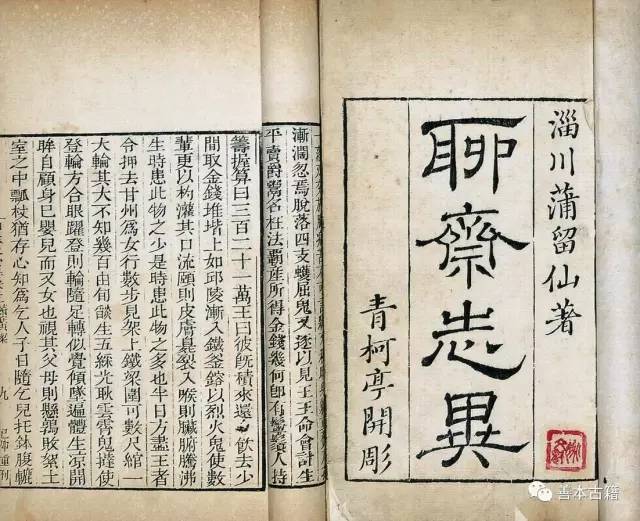 淄川蒲留仙著
聊齋志異
青柯亭開彫
漸濶忽焉脫落四支蠖屈鬼又逐以見王王命會計生
平賣爵鬻名枉法覇產所得金錢幾何卽有鬚人持
籌握算曰三百二十一萬王曰彼旣積來還飲去少
間取金錢堆堦上如邱陵漸入鐵釜鎔以烈火鬼使數
輩更以杓灌其口流頤則皮膚臭裂入喉則臟腑騰沸
生時患此物之少是時患此物之多也半日方盡王者
令押去甘州爲女行數步見架上鐵梁圍可數尺綰一
大輪其大不知幾百由旬燄生五綵光耿雲霄鬼撻使
登輪方合眼躍登則輪隨足轉似覺傾墜遍體生涼開
眸自顧身已嬰兒而又女也視其父母則懸鶉敗絮土
室之中瓢杖猶存心知爲乞人子日隨乞兒托鉢腹轆
九
善本古籍